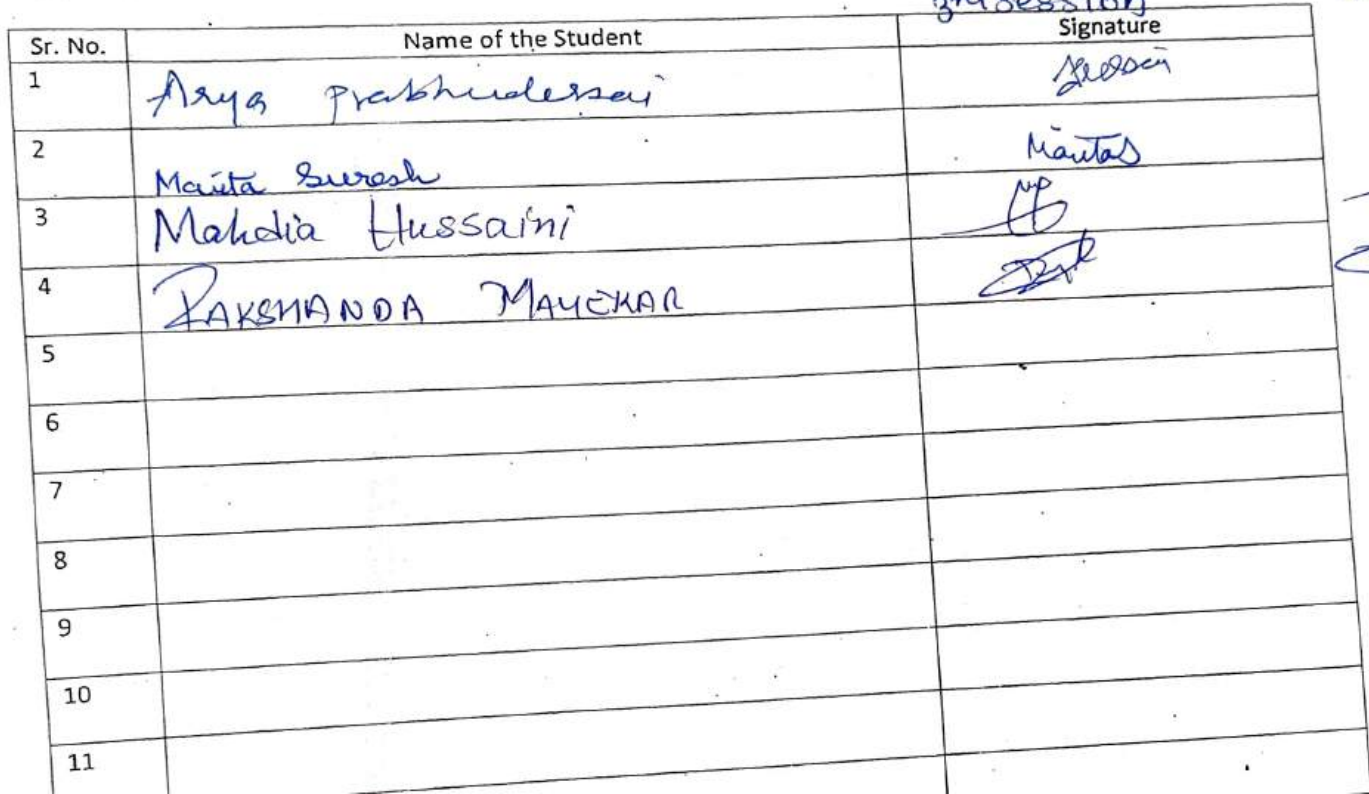 session
Sr. No. Name of the Student Signature
1 Arya Prabhudessai
2 Manta Suresh Mantas
3 Mahdia Hussaini
4 RAKSHANDA MAYEKAR
5
6
7
8
9
10
11